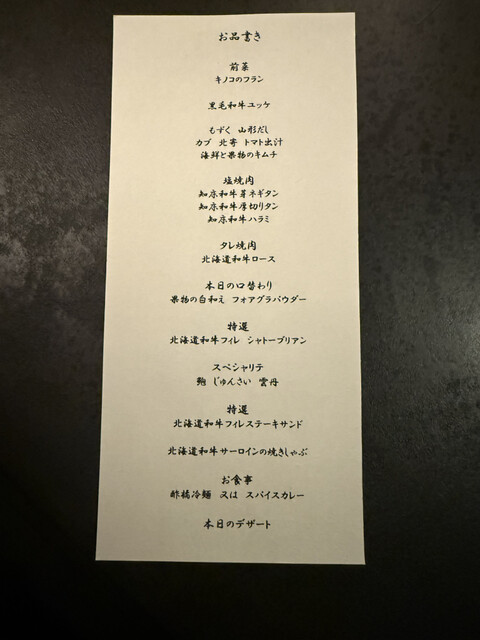 お品書き
前菜
キノコのフラン
黒毛和牛ユッケ
もずく 山形だし
カブ 北寄 トマト出汁
海鮮と果物のキムチ
塩焼肉
知床和牛芽ネギタン
知床和牛厚切りタン
知床和牛ハラミ
タレ焼肉
北海道和牛ロース
本日の口替わり
果物の白和え フォアグラパウダー
特選
北海道和牛フィレ シャトーブリアン
スペシャリテ
鮑 じゅんさい 雲丹
特選
北海道和牛フィレステーキサンド
北海道和牛サーロインの焼きしゃぶ
お食事
酢橘冷麺 又は スパイスカレー
本日のデザート